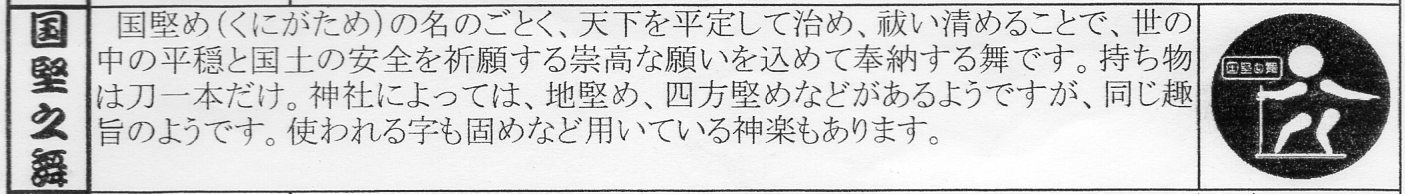 国堅之舞
国堅め(くにがため)の名のごとく、天下を平定して治め、祓い清めることで、世の
中の平穏と国土の安全を祈願する崇高な願いを込めて奉納する舞です。持ち物
は刀一本だけ。神社によっては、地堅め、四方堅めなどがあるようですが、同じ趣
旨のようです。使われる字も固めなど用いている神楽もあります。
国堅の舞